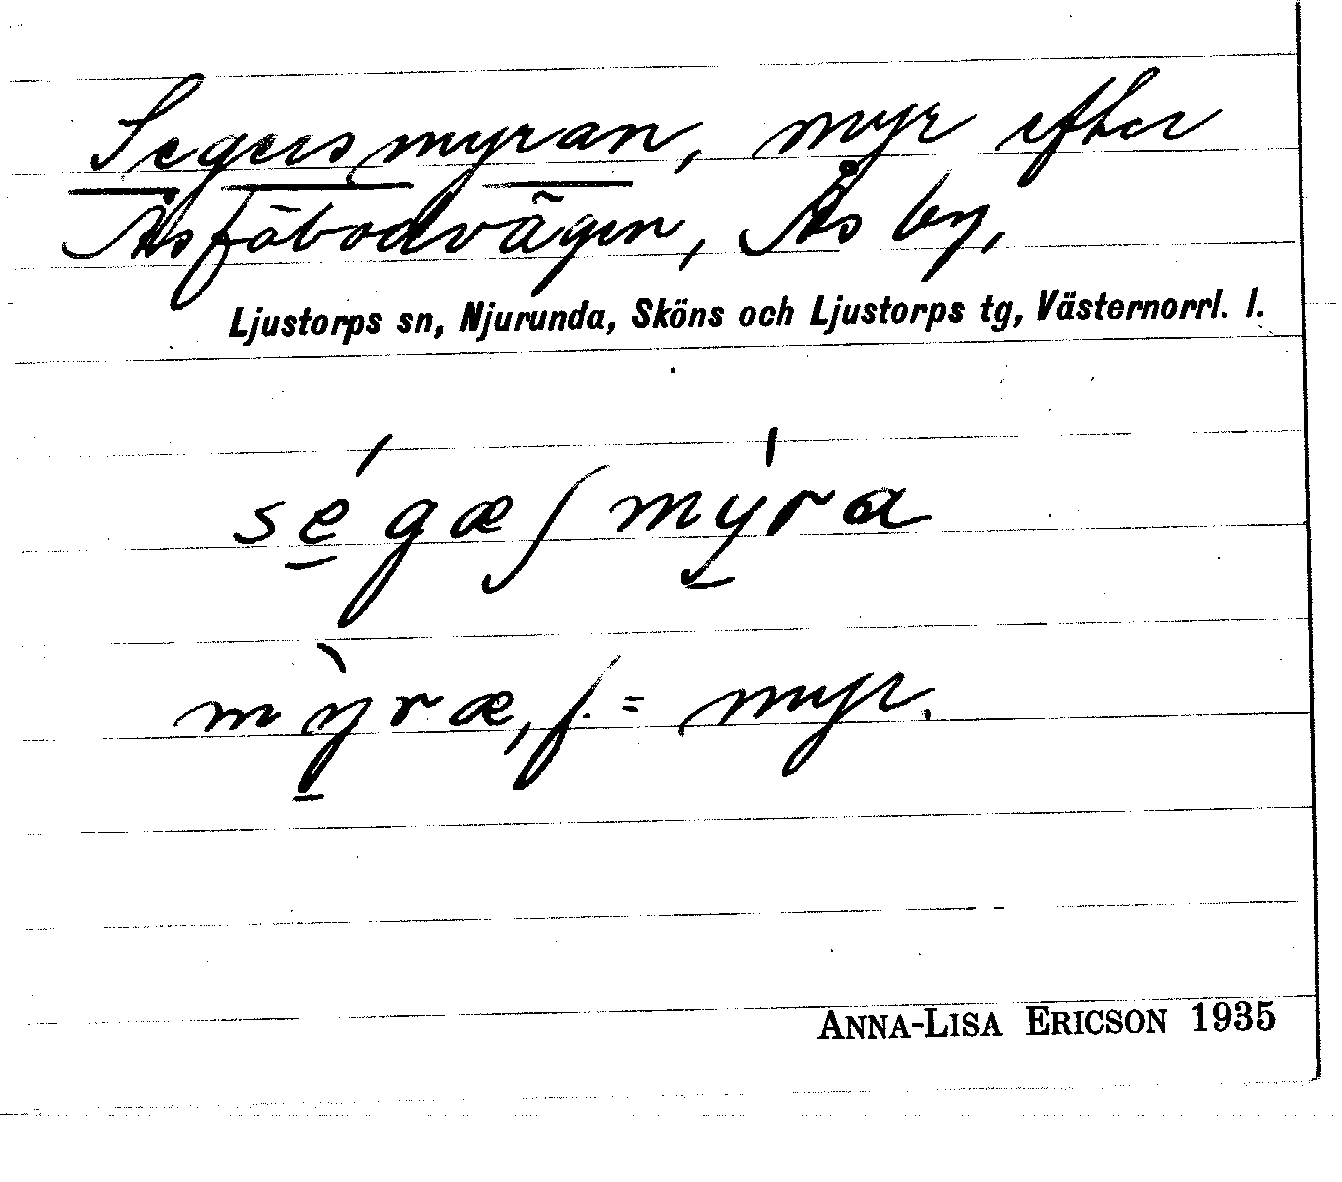 Segersmyran, myr efter
Åsfäbodvägen, Ås by,
Ljustorps sn, Njurunda, Sköns och Ljustorps tg, Västernorrl. l.
sé̱gæʃmý̱ra
mỳ̱ræ, f. = myr.
ANNA-LISA ERICSON 1935